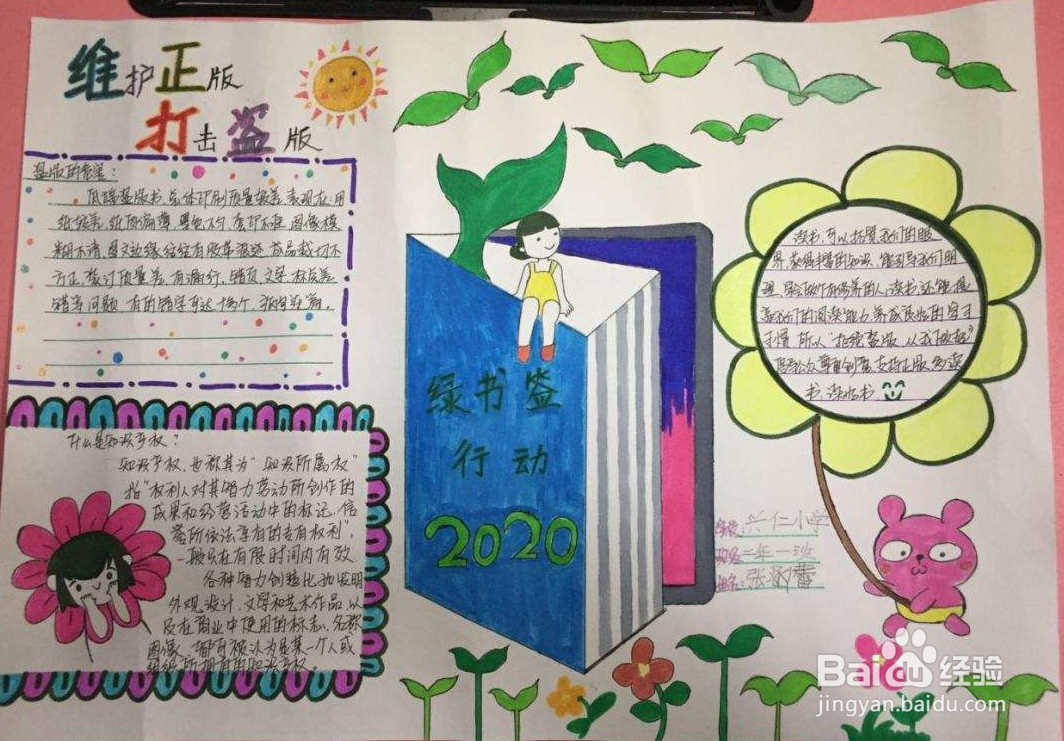 维护正版
打击盗版
盗版的危害：
低端盗版书，总体印刷质量较差，表现在：用
纸较差，纸质偏薄，墨色不匀，套印不准，图像模
糊不清，图文边缘往往有
方正，装订质量差，有漏行、错页、文字、标点差
错等问题，有的错字可达
什么是知识产权？
知识产权，也称其为“知识所属权”
指“权利人对其智力劳动所创作的
成果和经营活动中的标记、信
誉所依法享有的专有权利”，
一般只在有限时间内有效
各种智力创造比如发明
外观设计、文学和艺术作品，以
及在商业中使用的标志、名称
图像，都可被认为是某一个人或
组织所拥有的知识产权。
绿书签
行动
2020
读书，可以拓展我们的眼
界，获得丰富的知识，能引导我们明
理，学会做个有修养的人，读书还能提
高我们的阅读能力，养成良好的学习
习惯，所以“拒绝盗版，从我做起”
倡导公众尊重创意，支持正版，多读
书，读好书
学校：兴仁小学
班级：二年一班
姓名：张
Baidu经验
jingyan.baidu.com